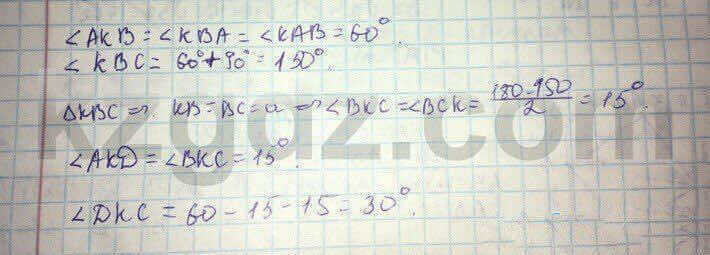 ∠AKB = ∠KBA = ∠KAB = 60°.
∠KBC = 60° + 90° = 150°.
ΔKBC ⇒ KB = BC = a ⇒ ∠BKC = ∠BCK = (180 - 150)/2 = 15°.
∠AKD = ∠BKC = 15°.
∠DKC = 60 - 15 - 15 = 30°.
kzgdz.com